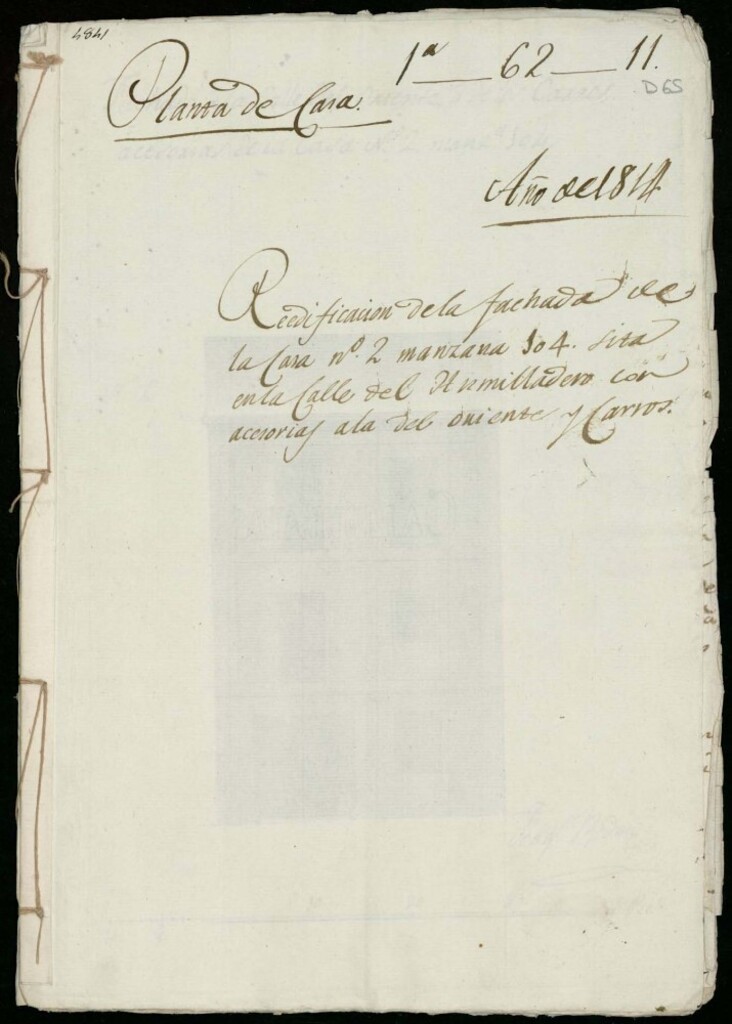 4841
1ª — 62 — 11.
D 65
Planta de Casa.
Año de 1814
Reedificacion dela fachada de
la Casa nº. 2 manzana 104. sita
enla Calle del Humilladero con
accesorias ala del oriente y Carros.